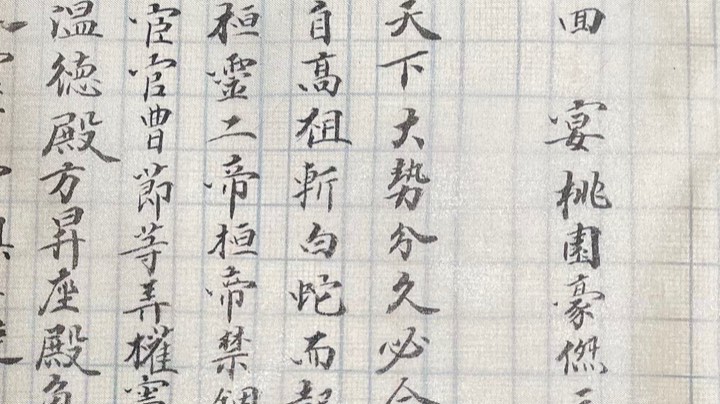 回 宴桃園豪傑三
天下大勢分久必合
自高祖斬白蛇而起
桓靈二帝桓帝禁錮
宦官曹節等弄權竊
溫德殿方昇座殿角